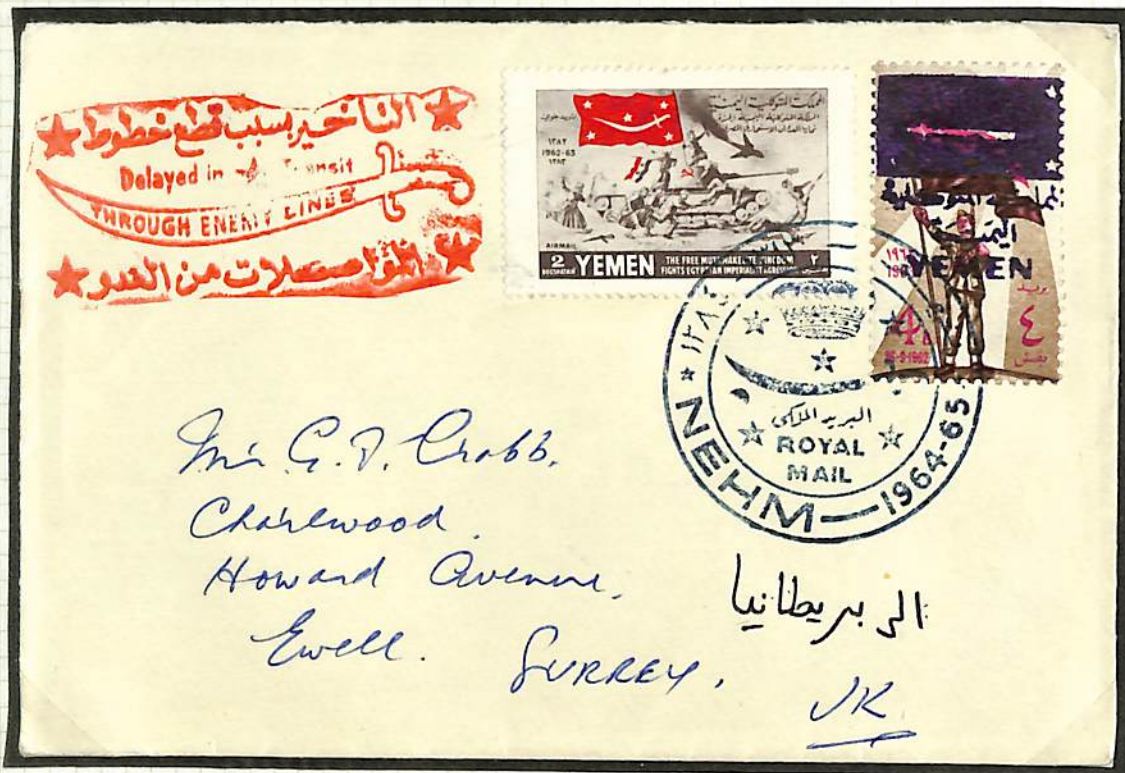 التأخير بسبب قطع خطوط
Delayed in Transit
THROUGH ENEMY LINES
المواصلات من العدو
المملكة المتوكلية اليمنية
١٣٨٢
1962-63
١٣٨٣
AIRMAIL
2
BOGSHAHS
YEMEN
THE FREE MUTAWAKELITE KINGDOM
FIGHTS EGYPTIAN IMPERIALIST AGRESSION
٢
اليمنية
YEMEN
بريد
4
٤
26-9-1962
بقش
NEHM — 1964-65
البريد الملكي
ROYAL
MAIL
Mr G. D. Chabb.
Charlwood.
Howard Avenue,
Ewell.
SURREY.
UK
الى بريطانيا